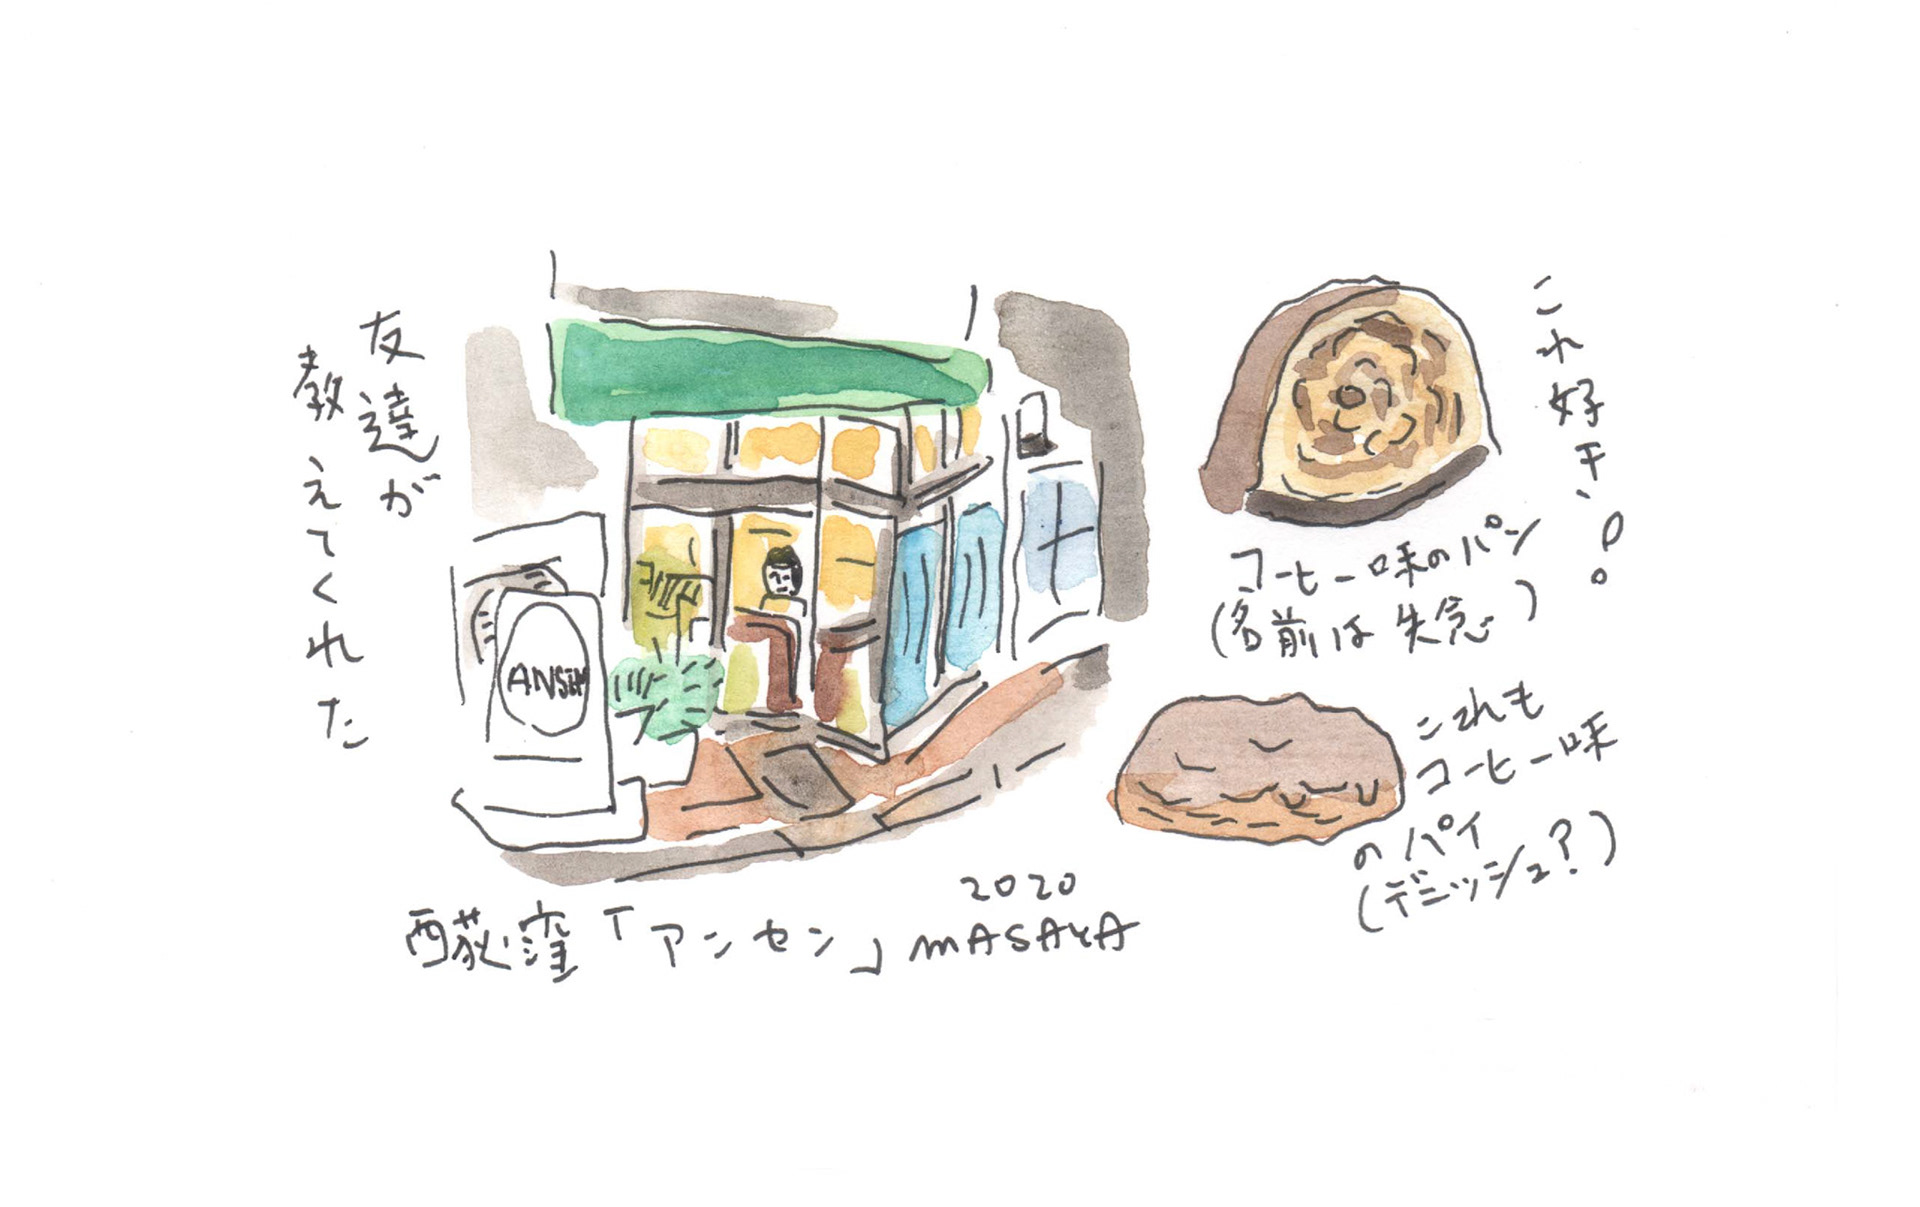 友達が
教えてくれた
ANSEN
西荻窪「アンセン」
2020
MASAYA
これ好キ、!。
コーヒー味のパン
(名前は失念)
これも
コーヒー味
のパイ
(デニッシュ?)